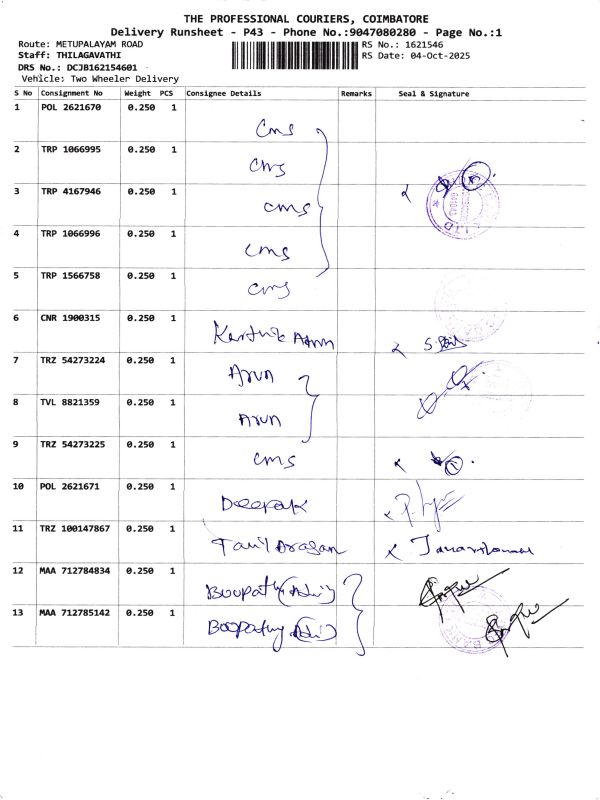 THE PROFESSIONAL COURIERS, COIMBATORE
Delivery Runsheet - P43 - Phone No.:9047080280 - Page No.:1
Route: METUPALAYAM ROAD RS No.: 1621546
Staff: THILAGAVATHI RS Date: 04-Oct-2025
DRS No.: DCJB162154601
Vehicle: Two Wheeler Delivery
S No Consignment No Weight PCS Consignee Details Remarks Seal & Signature
1 POL 2621670 0.250 1 cms
2 TRP 1066995 0.250 1 cms
3 TRP 4167946 0.250 1 cms
4 TRP 1066996 0.250 1 cms
5 TRP 1566758 0.250 1 cms
6 CNR 1900315 0.250 1 Karthik Arun
7 TRZ 54273224 0.250 1 Arun
8 TVL 8821359 0.250 1 Arun
9 TRZ 54273225 0.250 1 cms
10 POL 2621671 0.250 1 Deepak
11 TRZ 100147867 0.250 1 Tamil Arasan
12 MAA 712784834 0.250 1 Boopathy
13 MAA 712785142 0.250 1 Boopathy